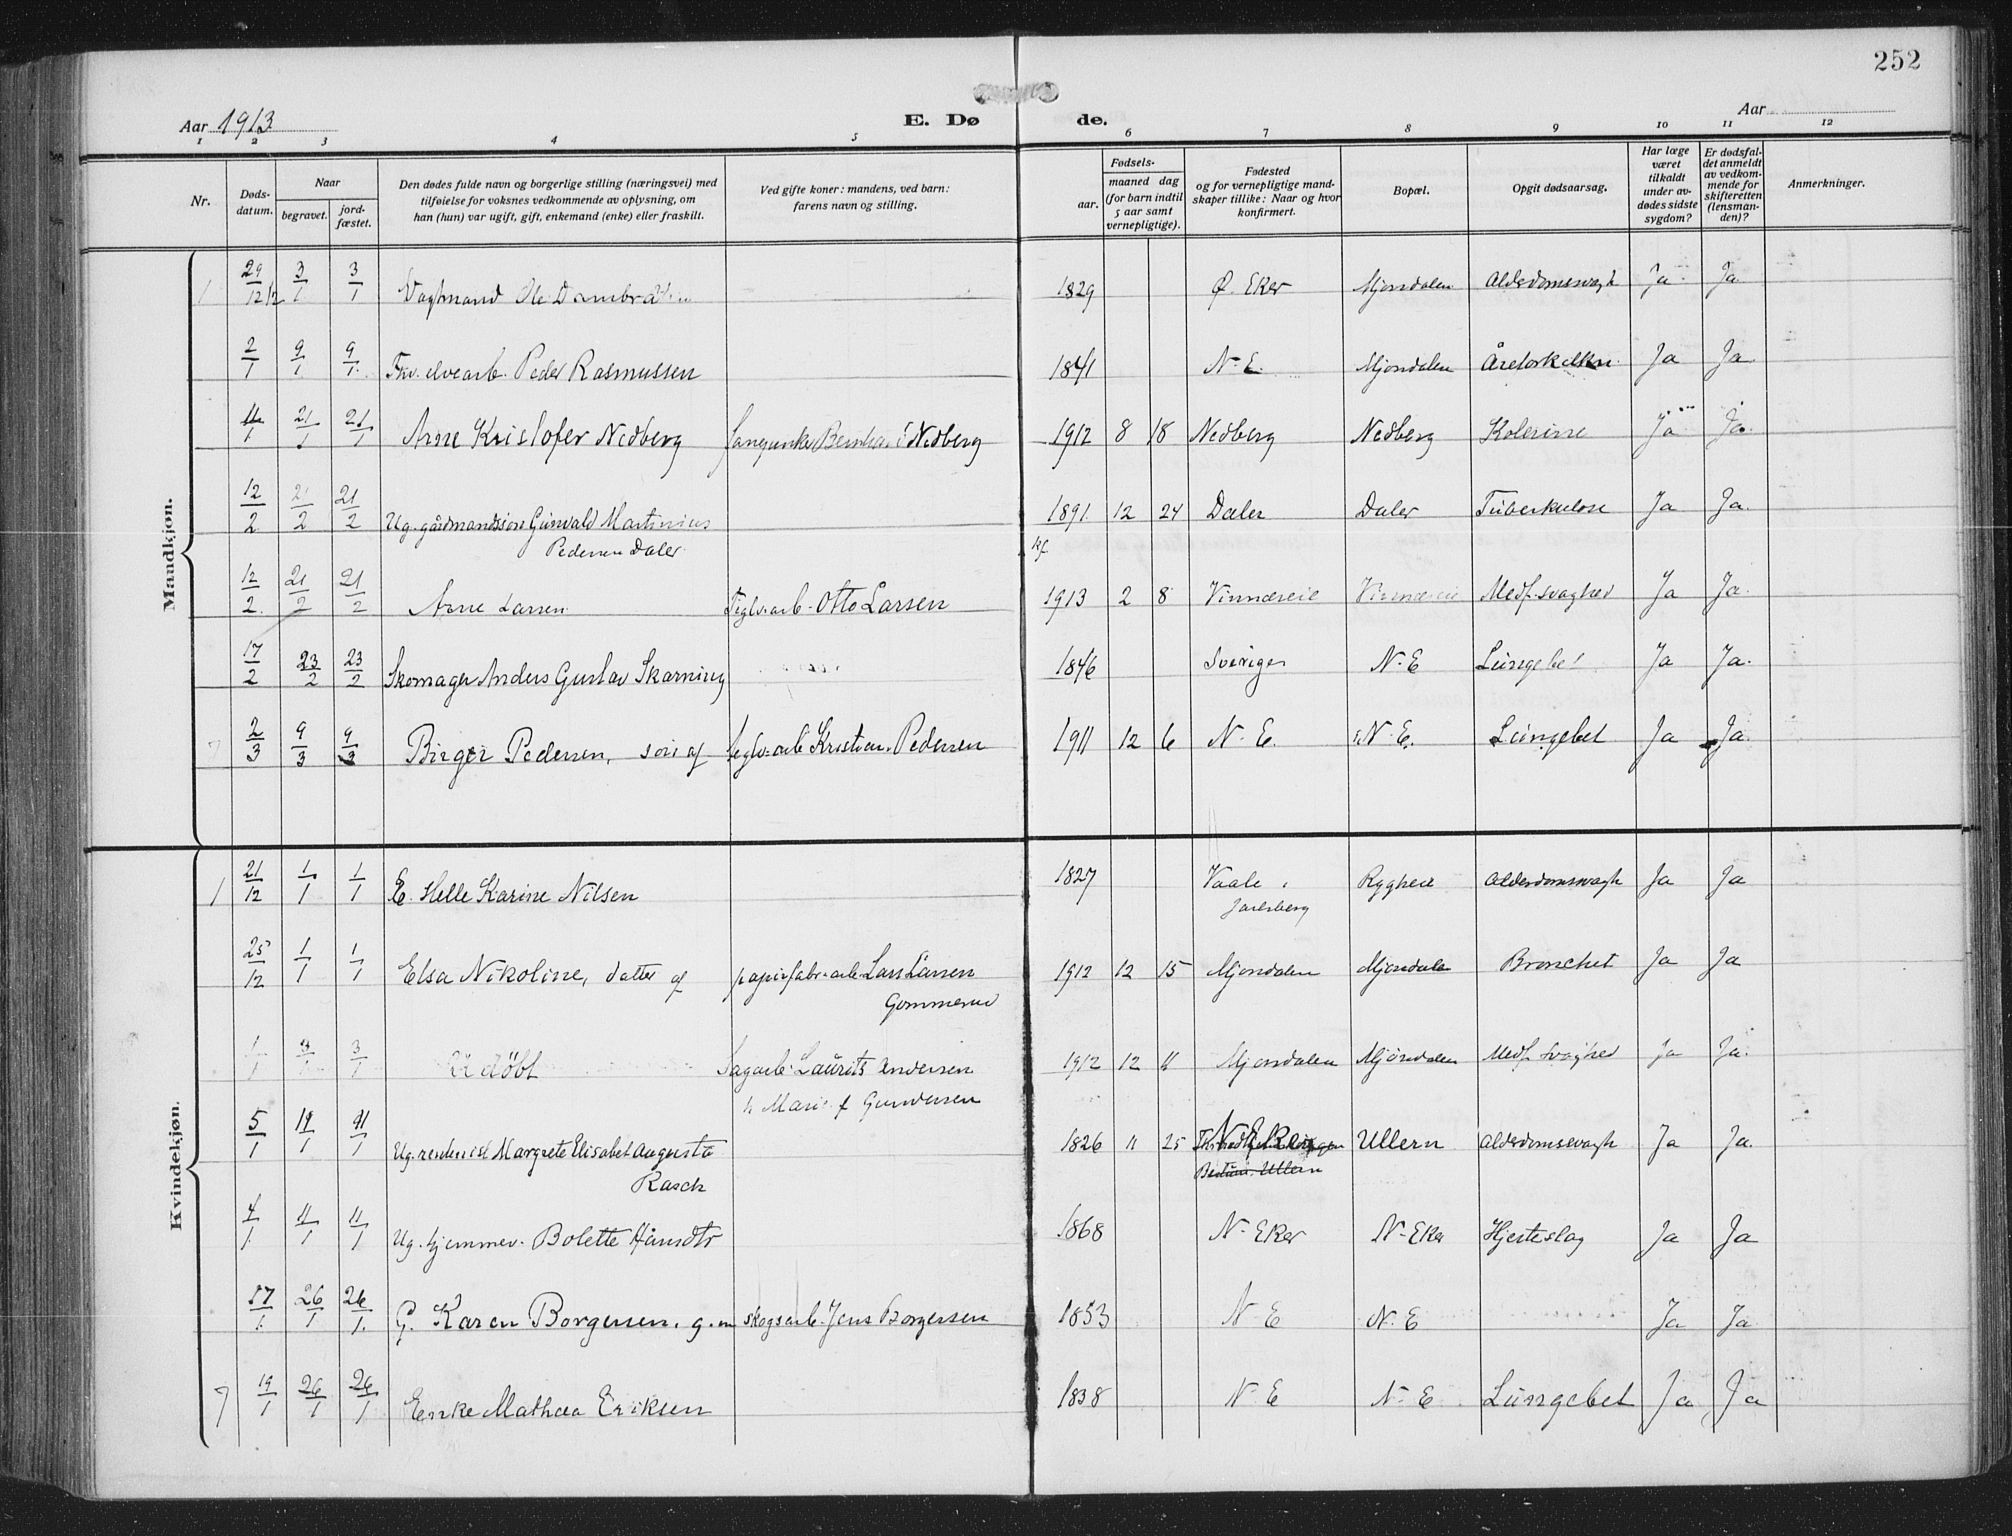 252
Aar 1913
E. Dø de.
Aar
1 2 3 4 5 6 7 8 9 10 11 12
Nr.
Døds-
datum.
Naar
begravet.
jord-
fæstet.
Den dødes fulde navn og borgerlige stilling (næringsvei) med
tilføielse for voksnes vedkommende av oplysning, om
han (hun) var ugift, gift, enkemand (enke) eller fraskilt.
Ved gifte koner: mandens, ved barn:
farens navn og stilling.
Fødsels-
aar.
maaned dag
(for barn indtil
5 aar samt
vernepligtige).
Fødested
og for vernepligtige mand-
skaper tillike: Naar og hvor
konfirmert.
Bopæl.
Opgit dødsaarsag.
Har læge
været
tilkaldt
under av-
dødes sidste
sygdom?
Er dødsfal-
det anmeldt
av vedkom-
mende for
skifteretten
(lensman-
den)?
Anmerkninger.
Mandkjøn.
1 29/12 12 3/1 3/1 Ole 1829 Ø. Eker Mjondalen Alderdomsvagh Ja Ja
2/1 9/1 9/1 elvearb. Peder Rasmussen 1841 N-E. Mjondalen Åreforkalkn. Ja Ja
11/1 21/1 21/1 Arne Kristofer Nedberg Nedberg 1912 8 18 Nedberg Nedberg Kolerine Ja Ja
12/2 21/2 21/2 Ug. gårdmandssøn Gunvald Martinius
Pedersen Daler 1891 12 24 Daler Daler Tuberkulose Ja Ja
12/2 21/2 21/2 Arne Larsen Teglv.arb. Otto Larsen 1913 2 8 Vinnæseie Vinnæseie Medf. svaghed Ja Ja
17/2 23/2 23/2 Skomager Anders Gustav Skarning 1846 Sverige N-E Lungebet Ja Ja
7 2/3 9/3 9/3 Birger Pedersen, søn af Teglv.arb Kristian Pedersen 1911 12 6 N-E. N-E. Lungebet Ja Ja
Kvindekjøn.
1 21/12 1/1 1/1 E. Helle Karine Nilsen 1827 Vaale
Jarlsberg Rygheie Alderdomsvagh Ja Ja
25/12 1/1 1/1 Elsa Nikoline, datter af papirfabr.arb Lars Larsen
Gommerud 1912 12 15 Mjondalen Mjondalen Bronchit Ja Ja
1/1 3/1 3/1 Udöbt Sagarb. Laurits Andersen
h Marie f Gundersen 1912 12 11 Mjondalen Mjöndalen Medf. svaghed Ja Ja
5/1 11/1 11/1 Ug. rentenist Margrete Elisabet Augusta
Rasch 1826 11 25 N. Eker
Ullern Ullern Alderdomsvagh Ja Ja
4/1 11/1 11/1 Ug. hjemmev. Bolette 1868 N-Eker N-Eker Hjerteslag Ja Ja
17/1 26/1 26/1 G. Karen Borgersen. g. m skogsarb. Jens Borgersen 1853 N-E N-E Ja Ja
7 19/1 26/1 26/1 Enke Mathea Eriksen 1838 N-E N-E Lungebet Ja Ja